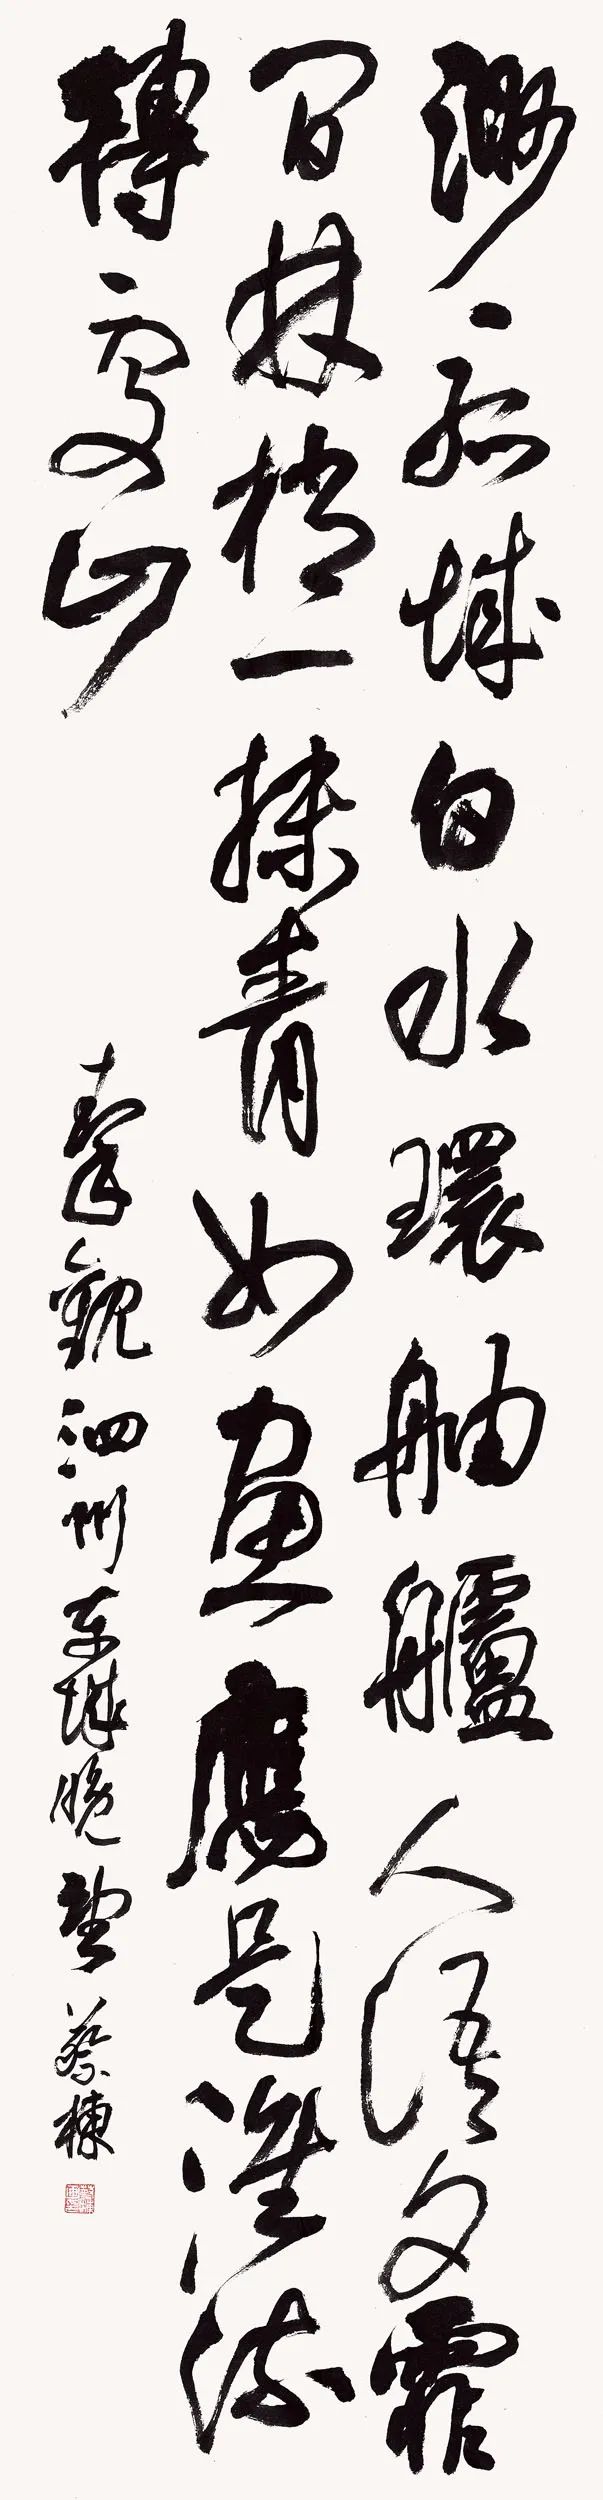 渺〻孤城白水環舳艫人語夕霏
間林梢一抹青如畫應是淮流
轉處山
秦觀泗州東城晚望 蔡棟